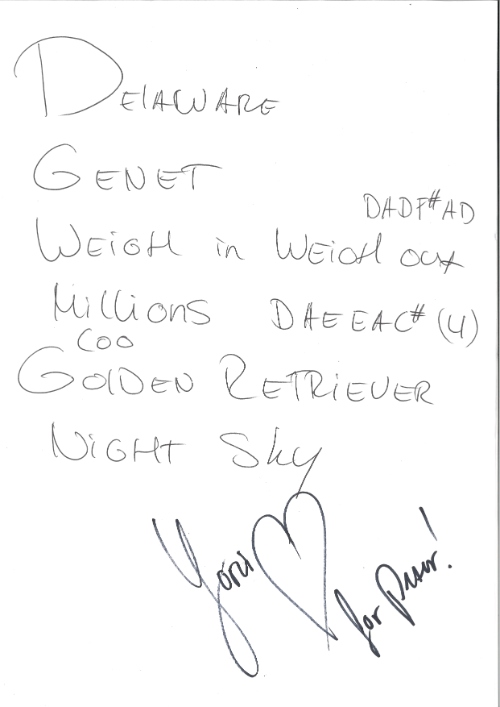 DELAWARE
GENET
DADF#AD
WEIGH in WEIGH out
Millions DAEEAC# (4)
COO
GOLDEN RETRIEVER
NIGHT Sky
for